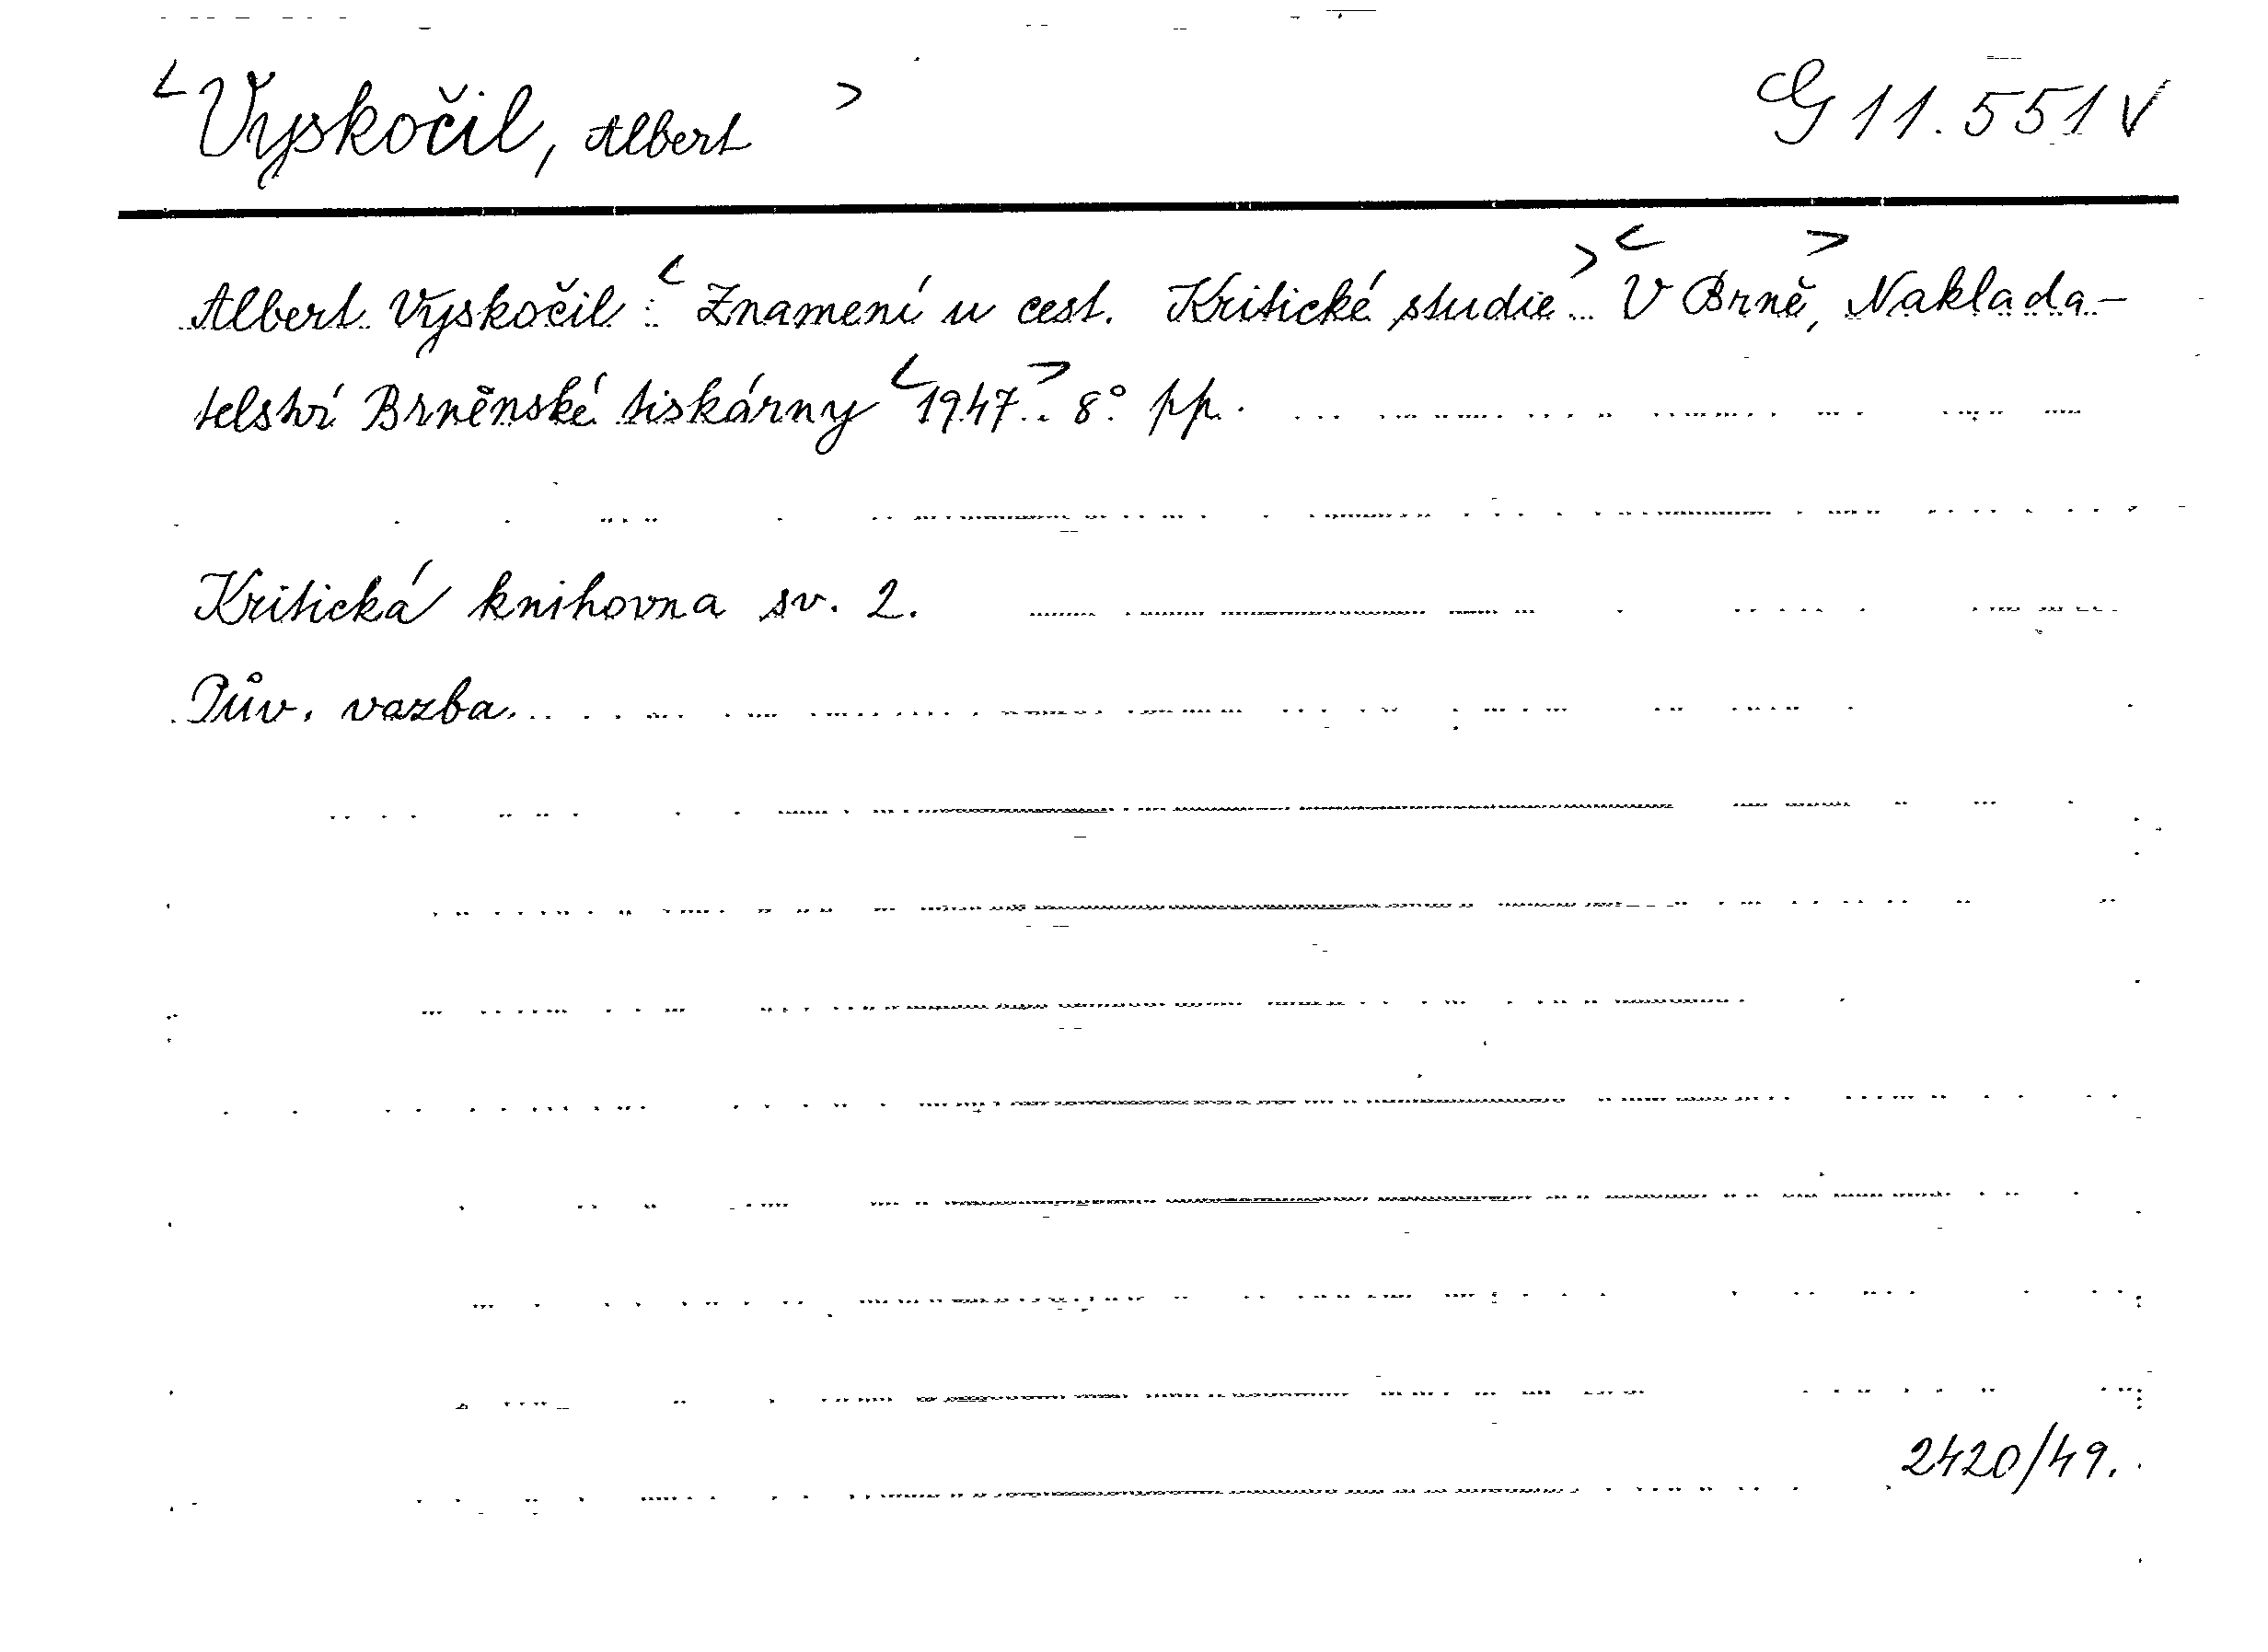 <Vyskočil, Albert> G 11.551 V
Albert Vyskočil: <Znamení u cest. Kritické studie.> <V Brně,> Naklada-
telství Brněnské tiskárny <1947.> 8° pp.
Kritická knihovna sv. 2.
Pův. vazba.
2420/49.